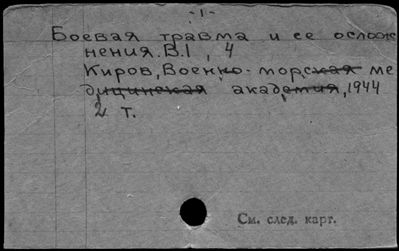 -1-
Боевая травма и ее ослож
нения. В.1, 4
Киров, Военно-морская ме
дицинская академия, 1944
2 т.
См. след. карт.